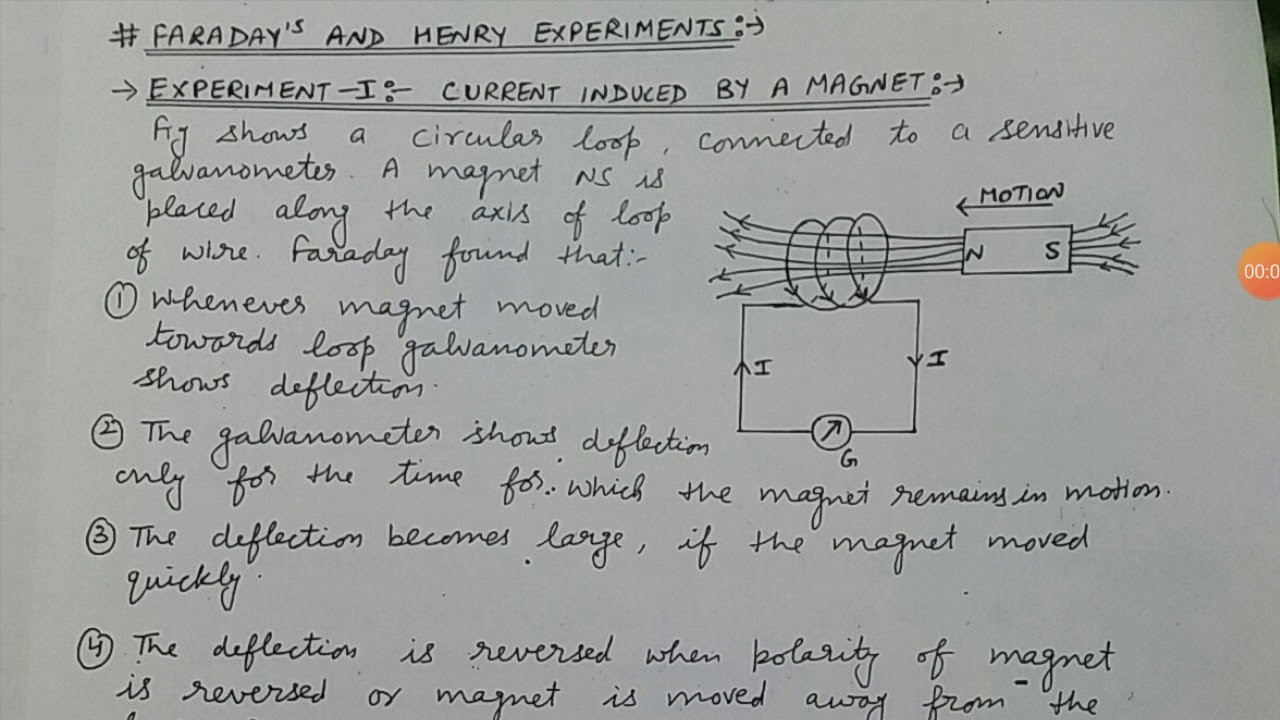 # FARADAY'S AND HENRY EXPERIMENTS:→
→ EXPERIMENT-I:- CURRENT INDUCED BY A MAGNET:→
Fig shows a circular loop, connected to a sensitive
galvanometer. A magnet NS is
placed along the axis of loop
of wire. Faraday found that:-
① Whenever magnet moved
towards loop galvanometer
shows deflection.
← MOTION
N S
I I
G
② The galvanometer shows deflection
only for the time for which the magnet remains in motion.
③ The deflection becomes large, if the magnet moved
quickly.
④ The deflection is reversed when polarity of magnet
is reversed or magnet is moved away from the
00:0